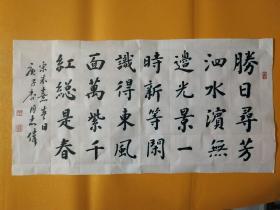 勝日尋芳
泗水濱無
邊光景一
時新等閑
識得東風
面萬紫千
紅総是春
宋朱熹春日
庚子月志偉